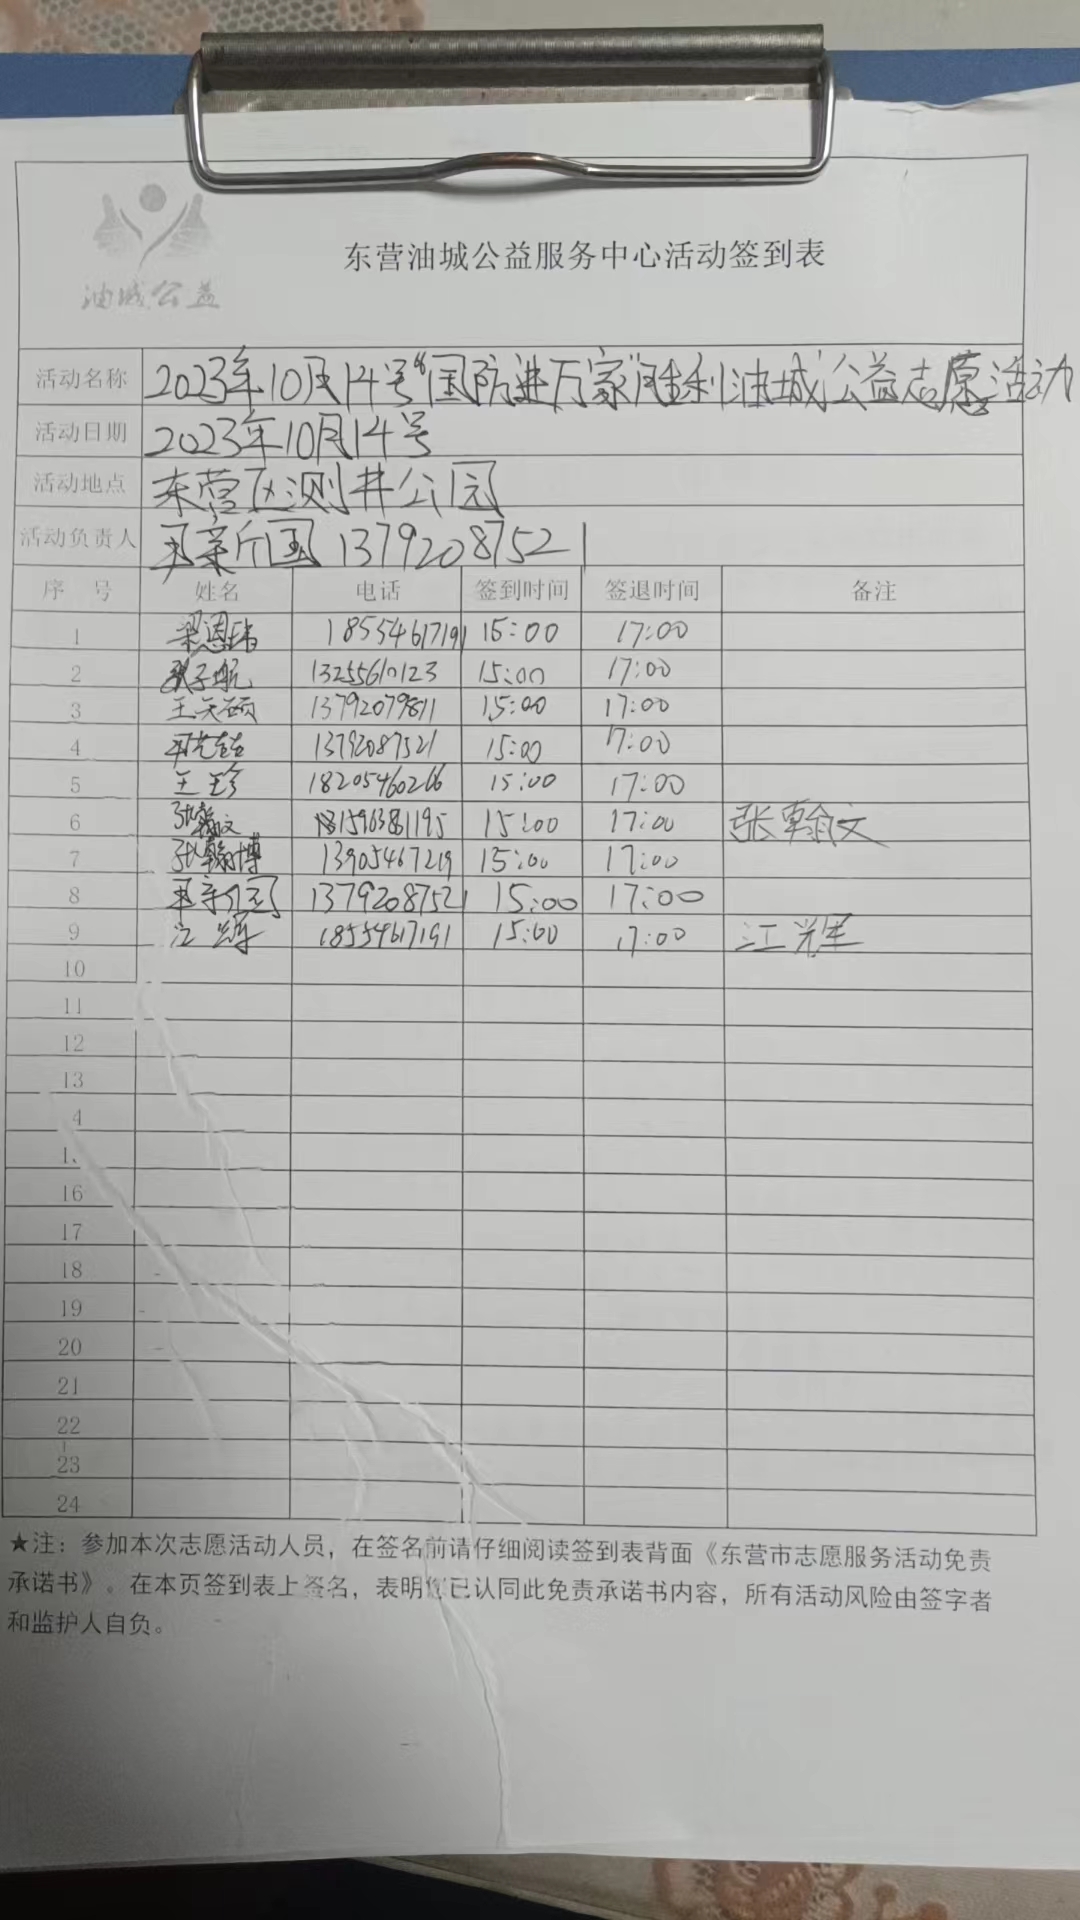 油城公益
东营油城公益服务中心活动签到表
活动名称 2023年10月14号“国防进万家”胜利油城公益志愿活动
活动日期 2023年10月14号
活动地点 东营区测井公园
活动负责人 国 13792087521
序 号 姓名 电话 签到时间 签退时间 备注
1 梁恩 18554617191 15:00 17:00
2 子航 13255610123 15:00 17:00
3 王天硕 13792079811 15:00 17:00
4 13792087521 15:00 17:00
5 王珍 18205460266 15:00 17:00
6 张翰文 15:00 17:00 张翰文
7 张翰博 13905467219 15:00 17:00
8 13792087521 15:00 17:00
9 江辉 18554617191 15:00 17:00 江辉
10
11
12
13
4
1
16
17
18
19
20
21
22
23
24
★注：参加本次志愿活动人员，在签名前请仔细阅读签到表背面《东营市志愿服务活动免责
承诺书》。在本页签到表上签名，表明您已认同此免责承诺书内容，所有活动风险由签字者
和监护人自负。